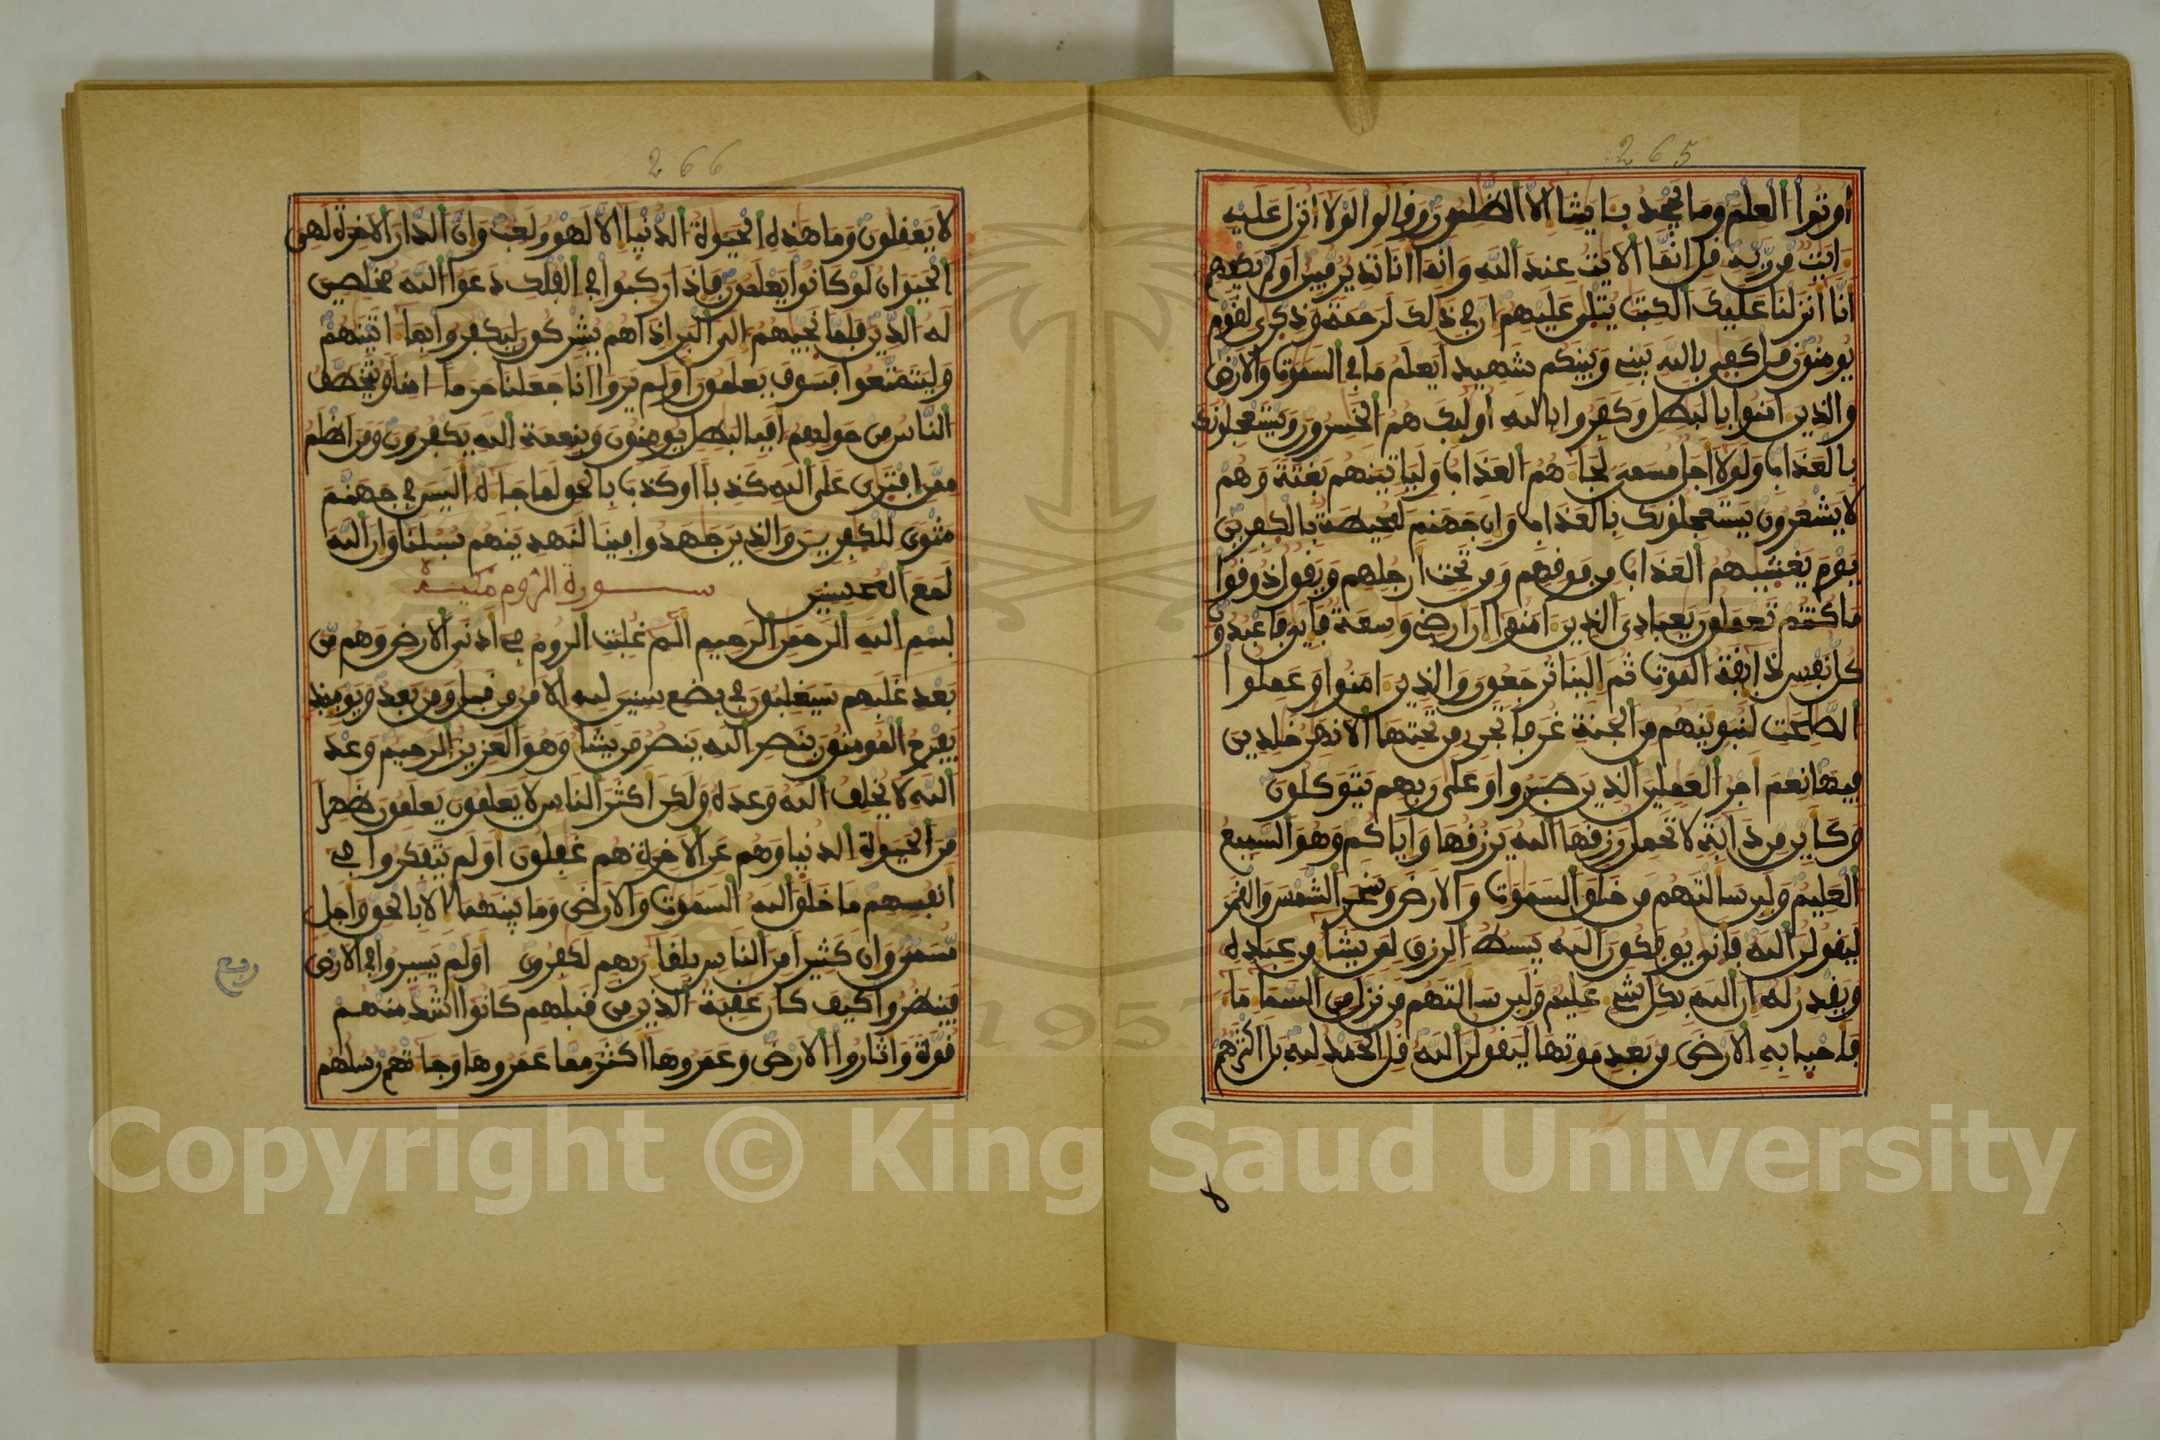 265
اوتوا العلم وما يجحد بايتنا الا الظلمون وقالوا لولا انزل عليه
ءايت من ربه قل انما الايت عند الله وانما انا نذير مبين اولم يكفهم
انا انزلنا عليك الكتب يتلى عليهم ان في ذلك لرحمة وذكرى لقوم
يومنون قل كفى بالله بيني وبينكم شهيدا يعلم ما في السموت والارض
والذين ءامنوا بالبطل وكفروا بالله اوليك هم الخسرون ويستعجلونك
بالعذاب ولولا اجل مسمى لجاءهم العذاب ولياتينهم بغتة وهم
لا يشعرون يستعجلونك بالعذاب وان جهنم لمحيطة بالكفرين
يوم يغشيهم العذاب من فوقهم ومن تحت ارجلهم ويقول ذوقوا
ما كنتم تعملون يعبادي الذين ءامنوا ان ارضي وسعة فايي فاعبدون
كل نفس ذايقة الموت ثم الينا ترجعون والذين ءامنوا وعملوا
الصلحت لنبوينهم من الجنة غرفا تجري من تحتها الانهر خلدين
فيها نعم اجر العملين الذين صبروا وعلى ربهم يتوكلون
وكاين من دابة لا تحمل رزقها الله يرزقها واياكم وهو السميع
العليم ولين سالتهم من خلق السموت والارض وسخر الشمس والقمر
ليقولن الله فانى يوفكون الله يبسط الرزق لمن يشاء من عباده
ويقدر له ان الله بكل شيء عليم ولين سالتهم من نزل من السماء ماء
فاحيا به الارض من بعد موتها ليقولن الله قل الحمد لله بل اكثرهم
266
لا يعقلون وما هذه الحيوة الدنيا الا لهو ولعب وان الدار الاخرة لهي
الحيوان لو كانوا يعلمون فاذا ركبوا في الفلك دعوا الله مخلصين
له الدين فلما نجيهم الى البر اذا هم يشركون ليكفروا بما ءاتينهم
وليتمتعوا فسوف يعلمون اولم يروا انا جعلنا حرما ءامنا ويتخطف
الناس من حولهم افبالبطل يومنون وبنعمة الله يكفرون ومن اظلم
ممن افترى على الله كذبا او كذب بالحق لما جاءه اليس في جهنم
مثوى للكفرين والذين جهدوا فينا لنهدينهم سبلنا وان الله
لمع المحسنين سورة الروم مكية
بسم الله الرحمن الرحيم الم غلبت الروم في ادنى الارض وهم من
بعد غلبهم سيغلبون في بضع سنين لله الامر من قبل ومن بعد ويوميذ
يفرح المومنون بنصر الله ينصر من يشاء وهو العزيز الرحيم وعد
الله لا يخلف الله وعده ولكن اكثر الناس لا يعلمون يعلمون ظهرا
من الحيوة الدنيا وهم عن الاخرة هم غفلون اولم يتفكروا في
انفسهم ما خلق الله السموت والارض وما بينهما الا بالحق واجل
مسمى وان كثيرا من الناس بلقاء ربهم لكفرون اولم يسيروا في الارض
فينظروا كيف كان عقبة الذين من قبلهم كانوا اشد منهم
قوة واثاروا الارض وعمروها اكثر مما عمروها وجاءتهم رسلهم
ربع
1957
Copyright © King Saud University